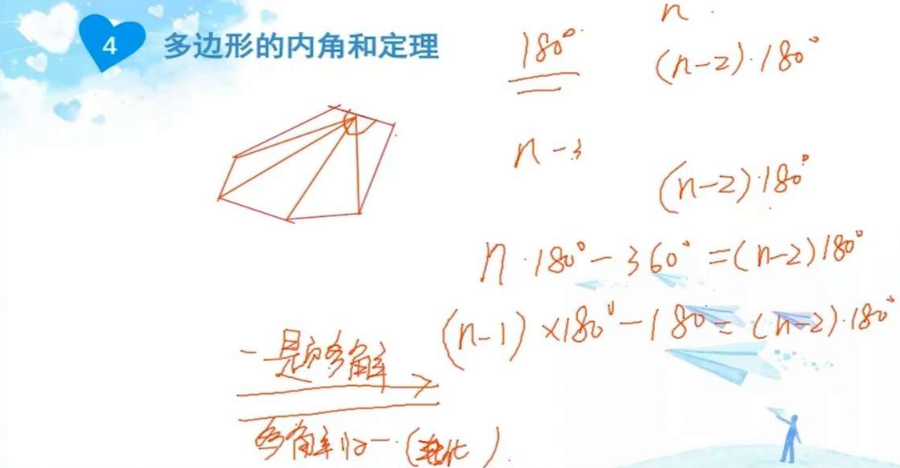 4 多边形的内角和定理
n.
180°
(n-2)·180°
n-3
(n-2)·180°
n·180°-360°=(n-2)180°
(n-1)×180°-180=(n-2)·180°
一题多解
多解归一(转化)